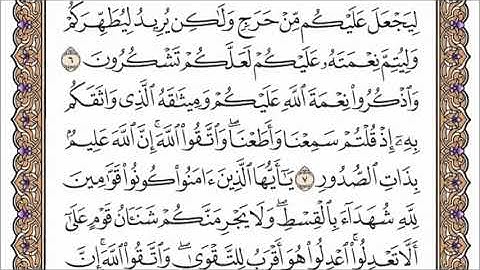 لِيَجْعَلَ عَلَيْكُم مِّنْ حَرَجٍ وَلَٰكِن يُرِيدُ لِيُطَهِّرَكُمْ
وَلِيُتِمَّ نِعْمَتَهُۥ عَلَيْكُمْ لَعَلَّكُمْ تَشْكُرُونَ ٦
وَاذْكُرُوا۟ نِعْمَةَ اللَّهِ عَلَيْكُمْ وَمِيثَٰقَهُ الَّذِى وَاثَقَكُم
بِهِۦٓ إِذْ قُلْتُمْ سَمِعْنَا وَأَطَعْنَا ۖ وَاتَّقُوا۟ اللَّهَ ۚ إِنَّ اللَّهَ عَلِيمٌۢ
بِذَاتِ الصُّدُورِ ٧ يَٰٓأَيُّهَا الَّذِينَ ءَامَنُوا۟ كُونُوا۟ قَوَّٰمِينَ
لِلَّهِ شُهَدَآءَ بِالْقِسْطِ ۖ وَلَا يَجْرِمَنَّكُمْ شَنَـَٔانُ قَوْمٍ عَلَىٰٓ
أَلَّا تَعْدِلُوا۟ ۚ اعْدِلُوا۟ هُوَ أَقْرَبُ لِلتَّقْوَىٰ ۖ وَاتَّقُوا۟ اللَّهَ ۚ إِنَّ